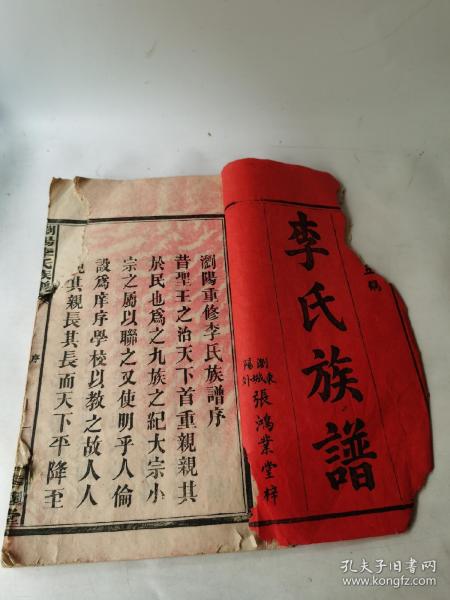 五稿
李氏族譜
瀏東
陽城外
張鴻業堂梓
瀏陽重修李氏族譜序
昔聖王之治天下首重親親其
於民也為之九族之紀大宗小
宗之屬以聯之又使明乎人倫
設為庠序學校以教之故人人
親其親長其長而天下平降至
瀏陽李氏族譜
序
孔夫子旧书网
www.kongfz.com